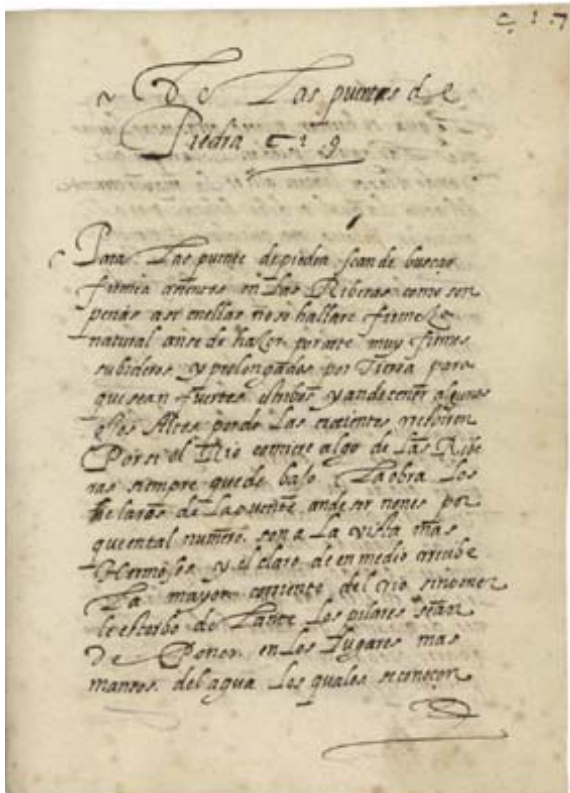 C. 1. 7
De Las puentes de
Piedra. C. 1. 9.
Para. Las puente de piedra scan de buscar
firmeça en las Riberas como son
penas as i enellas no se hallare firmeze
natural anse de hazer por arte muy firmes
subideros y prolongados por Tierra para
que sean fuertes estribos y an de tener algunos
ojos Altos por do Las crecientes respiren
Por si el Rio comiere algo de Las Ribe
ras siempre quede bajo La obra Los
de La puente an de ser nones por
que en tal numero son a La vista mas
Hermosos y el claro de en medio recibe
La mayor corriente del rio sin poner
le estorbo de Lante Los pilares sean
de Poner en Los Lugares mas
mansos del agua Los quales se conocen